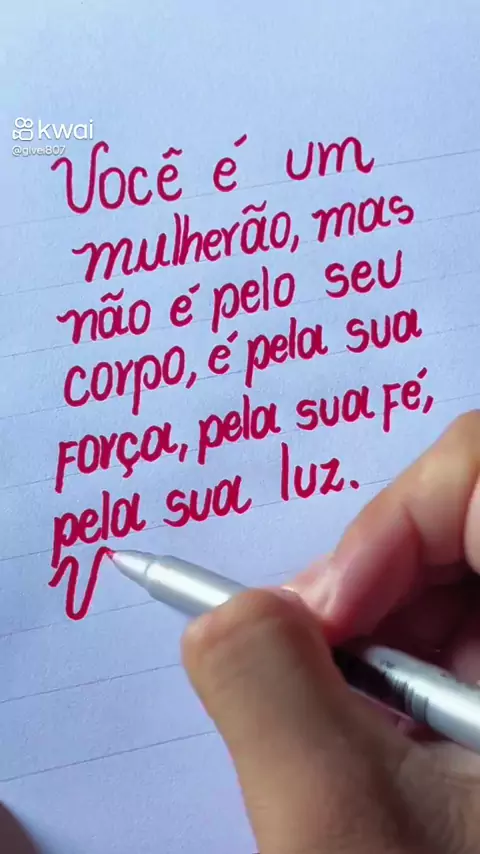 kwai
@givei807
Você é um
mulherão, mas
não é pelo seu
corpo, é pela sua
força, pela sua fé,
pela sua luz.
V